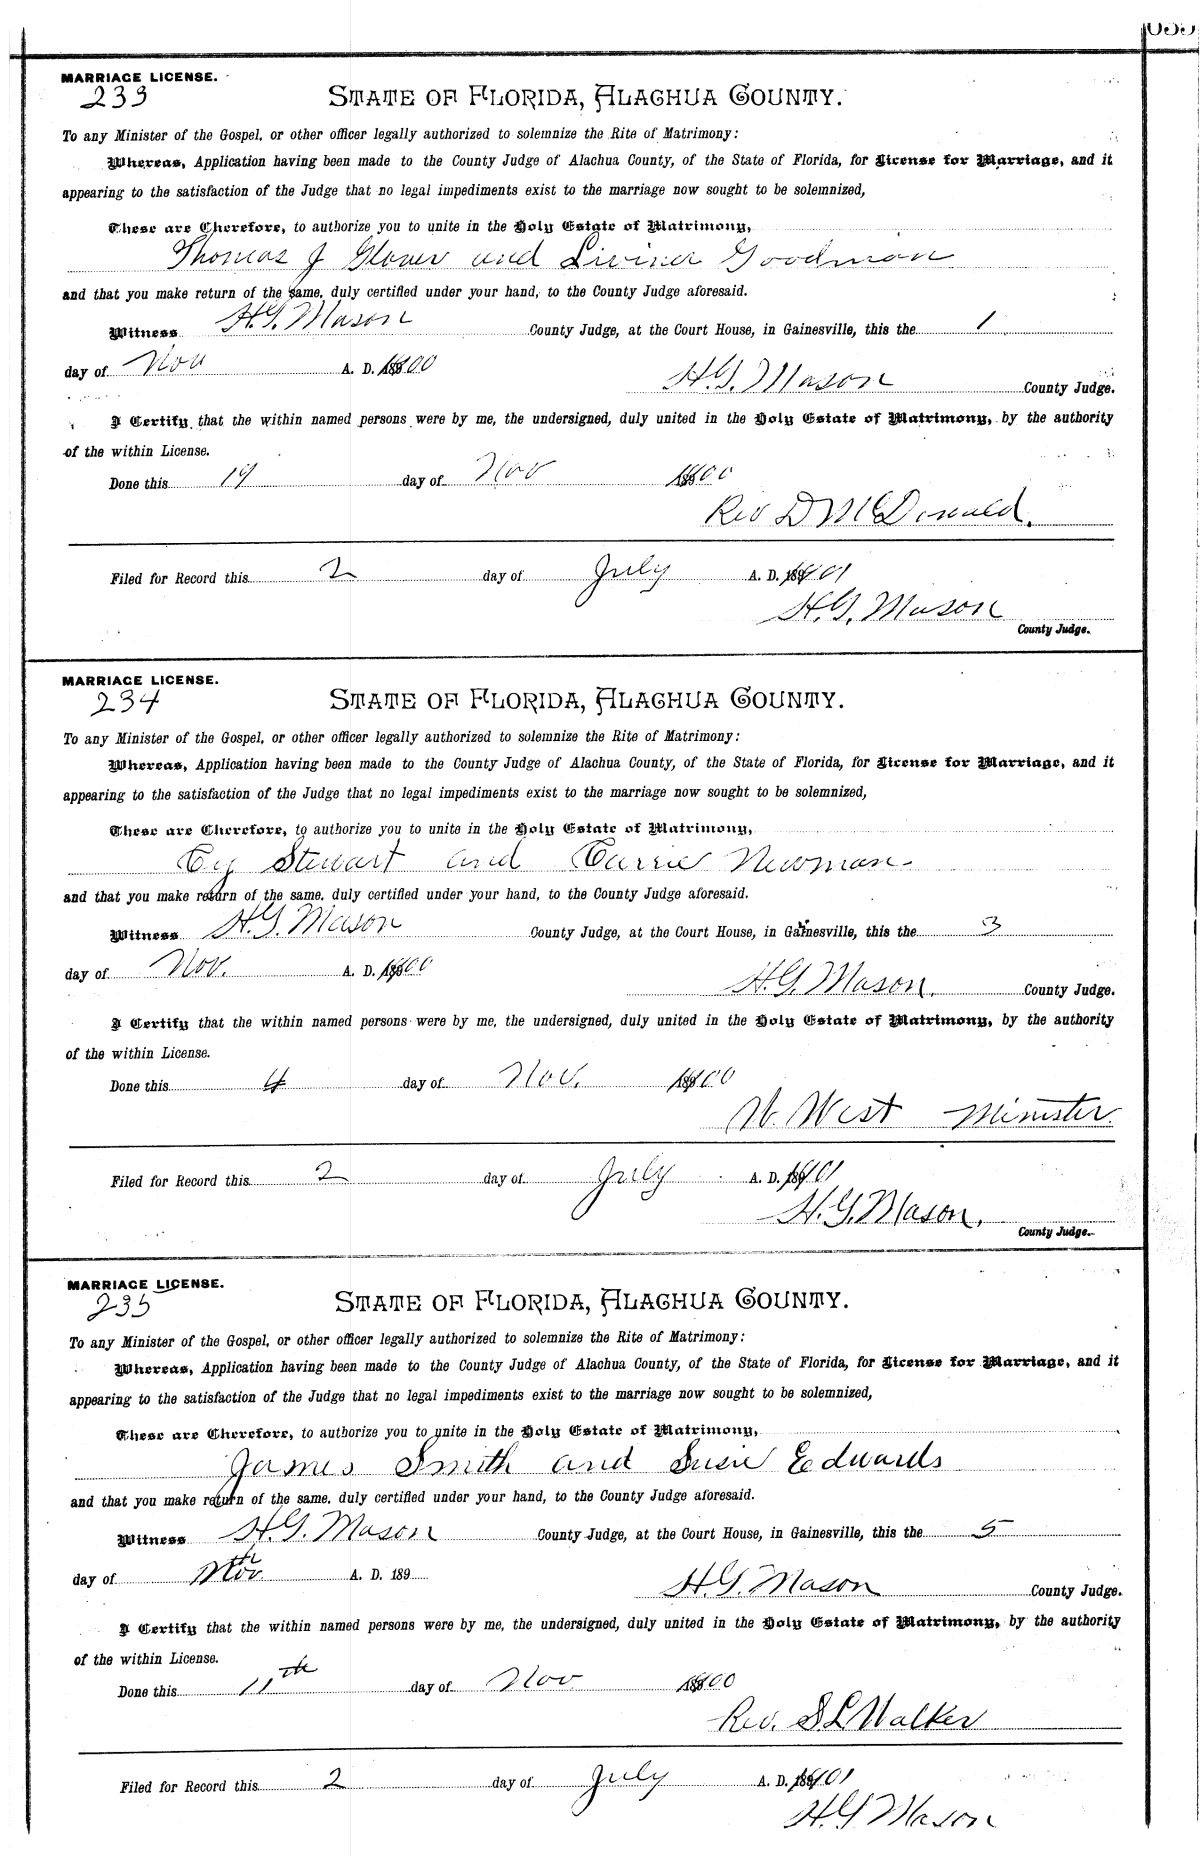 MARRIAGE LICENSE.
233
STATE OF FLORIDA, ALACHUA COUNTY.
To any Minister of the Gospel, or other officer legally authorized to solemnize the Rite of Matrimony:
Whereas, Application having been made to the County Judge of Alachua County, of the State of Florida, for License for Marriage, and it
appearing to the satisfaction of the Judge that no legal impediments exist to the marriage now sought to be solemnized,
These are Therefore, to authorize you to unite in the Holy Estate of Matrimony,
Thomas J Glover and Liviner Goodman
and that you make return of the same, duly certified under your hand, to the County Judge aforesaid.
Witness H.G. Mason County Judge, at the Court House, in Gainesville, this the 1
day of Nov A. D. 1900
H.G. Mason County Judge.
I Certify that the within named persons were by me, the undersigned, duly united in the Holy Estate of Matrimony, by the authority
of the within License.
Done this 19 day of Nov 1900
Rev D McDonald.
Filed for Record this 2 day of July A. D. 1901
H.G. Mason
County Judge.
MARRIAGE LICENSE.
234
STATE OF FLORIDA, ALACHUA COUNTY.
To any Minister of the Gospel, or other officer legally authorized to solemnize the Rite of Matrimony:
Whereas, Application having been made to the County Judge of Alachua County, of the State of Florida, for License for Marriage, and it
appearing to the satisfaction of the Judge that no legal impediments exist to the marriage now sought to be solemnized,
These are Therefore, to authorize you to unite in the Holy Estate of Matrimony,
Cy Stewart and Carrie Newman
and that you make return of the same, duly certified under your hand, to the County Judge aforesaid.
Witness H.G. Mason County Judge, at the Court House, in Gainesville, this the 3
day of Nov. A. D. 1900
H.G. Mason. County Judge.
I Certify that the within named persons were by me, the undersigned, duly united in the Holy Estate of Matrimony, by the authority
of the within License.
Done this 4 day of Nov. 1900
W. West Minister.
Filed for Record this 2 day of July A. D. 1901
H.G. Mason.
County Judge.
MARRIAGE LICENSE.
235
STATE OF FLORIDA, ALACHUA COUNTY.
To any Minister of the Gospel, or other officer legally authorized to solemnize the Rite of Matrimony:
Whereas, Application having been made to the County Judge of Alachua County, of the State of Florida, for License for Marriage, and it
appearing to the satisfaction of the Judge that no legal impediments exist to the marriage now sought to be solemnized,
These are Therefore, to authorize you to unite in the Holy Estate of Matrimony,
James Smith and Susie Edwards
and that you make return of the same, duly certified under your hand, to the County Judge aforesaid.
Witness H.G. Mason County Judge, at the Court House, in Gainesville, this the 5
day of Nov A. D. 189
H.G. Mason County Judge.
I Certify that the within named persons were by me, the undersigned, duly united in the Holy Estate of Matrimony, by the authority
of the within License.
Done this 11th day of Nov 1900
Rev. S L Walker
Filed for Record this 2 day of July A. D. 1901
H.G. Mason